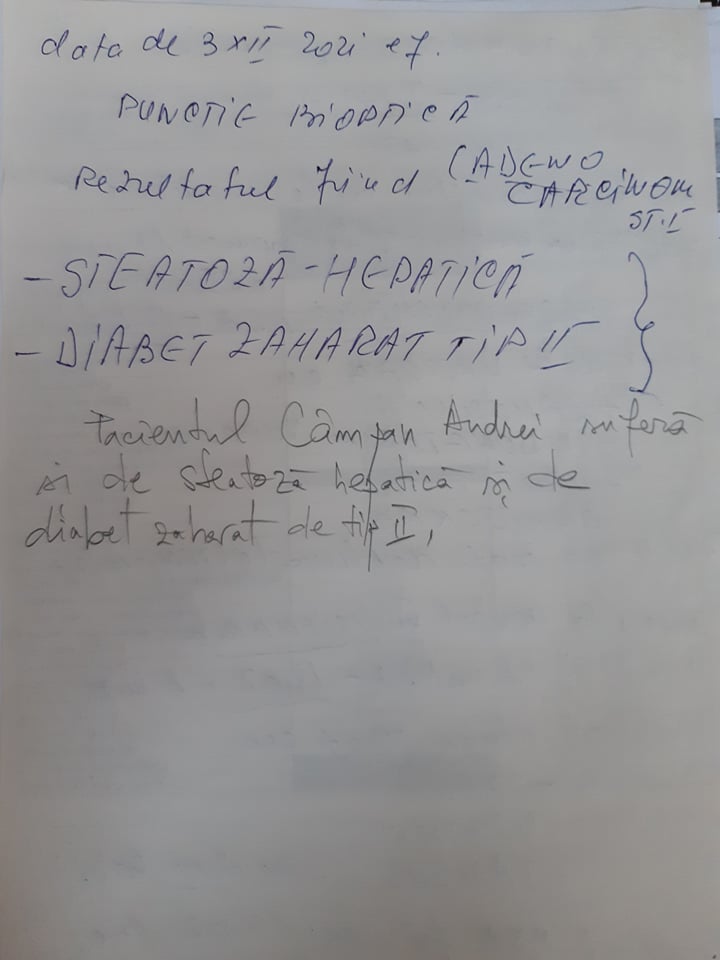 data de 3 XII 2021 e7.
PUNCTIE BIOPTICĂ
Rezultatul fiind (ADENO
CARCINOM
ST.I
- STEATOZĂ-HEPATICĂ
- DIABET ZAHARAT TIP II
Pacientul Câmpan Andrei suferă
și de steatoză hepatică și de
diabet zaharat de tip II,